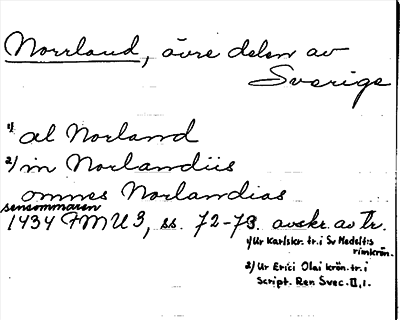 Norrland, övre delen av
Sverige
1) al Norland
2) in Norlandiis
omnes Norlandias
sensommaren
1434 FMU 3, ss. 72-73. avskr. av tr.
1) Ur Karlskr. tr. i Sv Medelt:s
rimkrön.
2) Ur Erici Olai krön. tr. i
Script. Rer. Svec. II, 1.